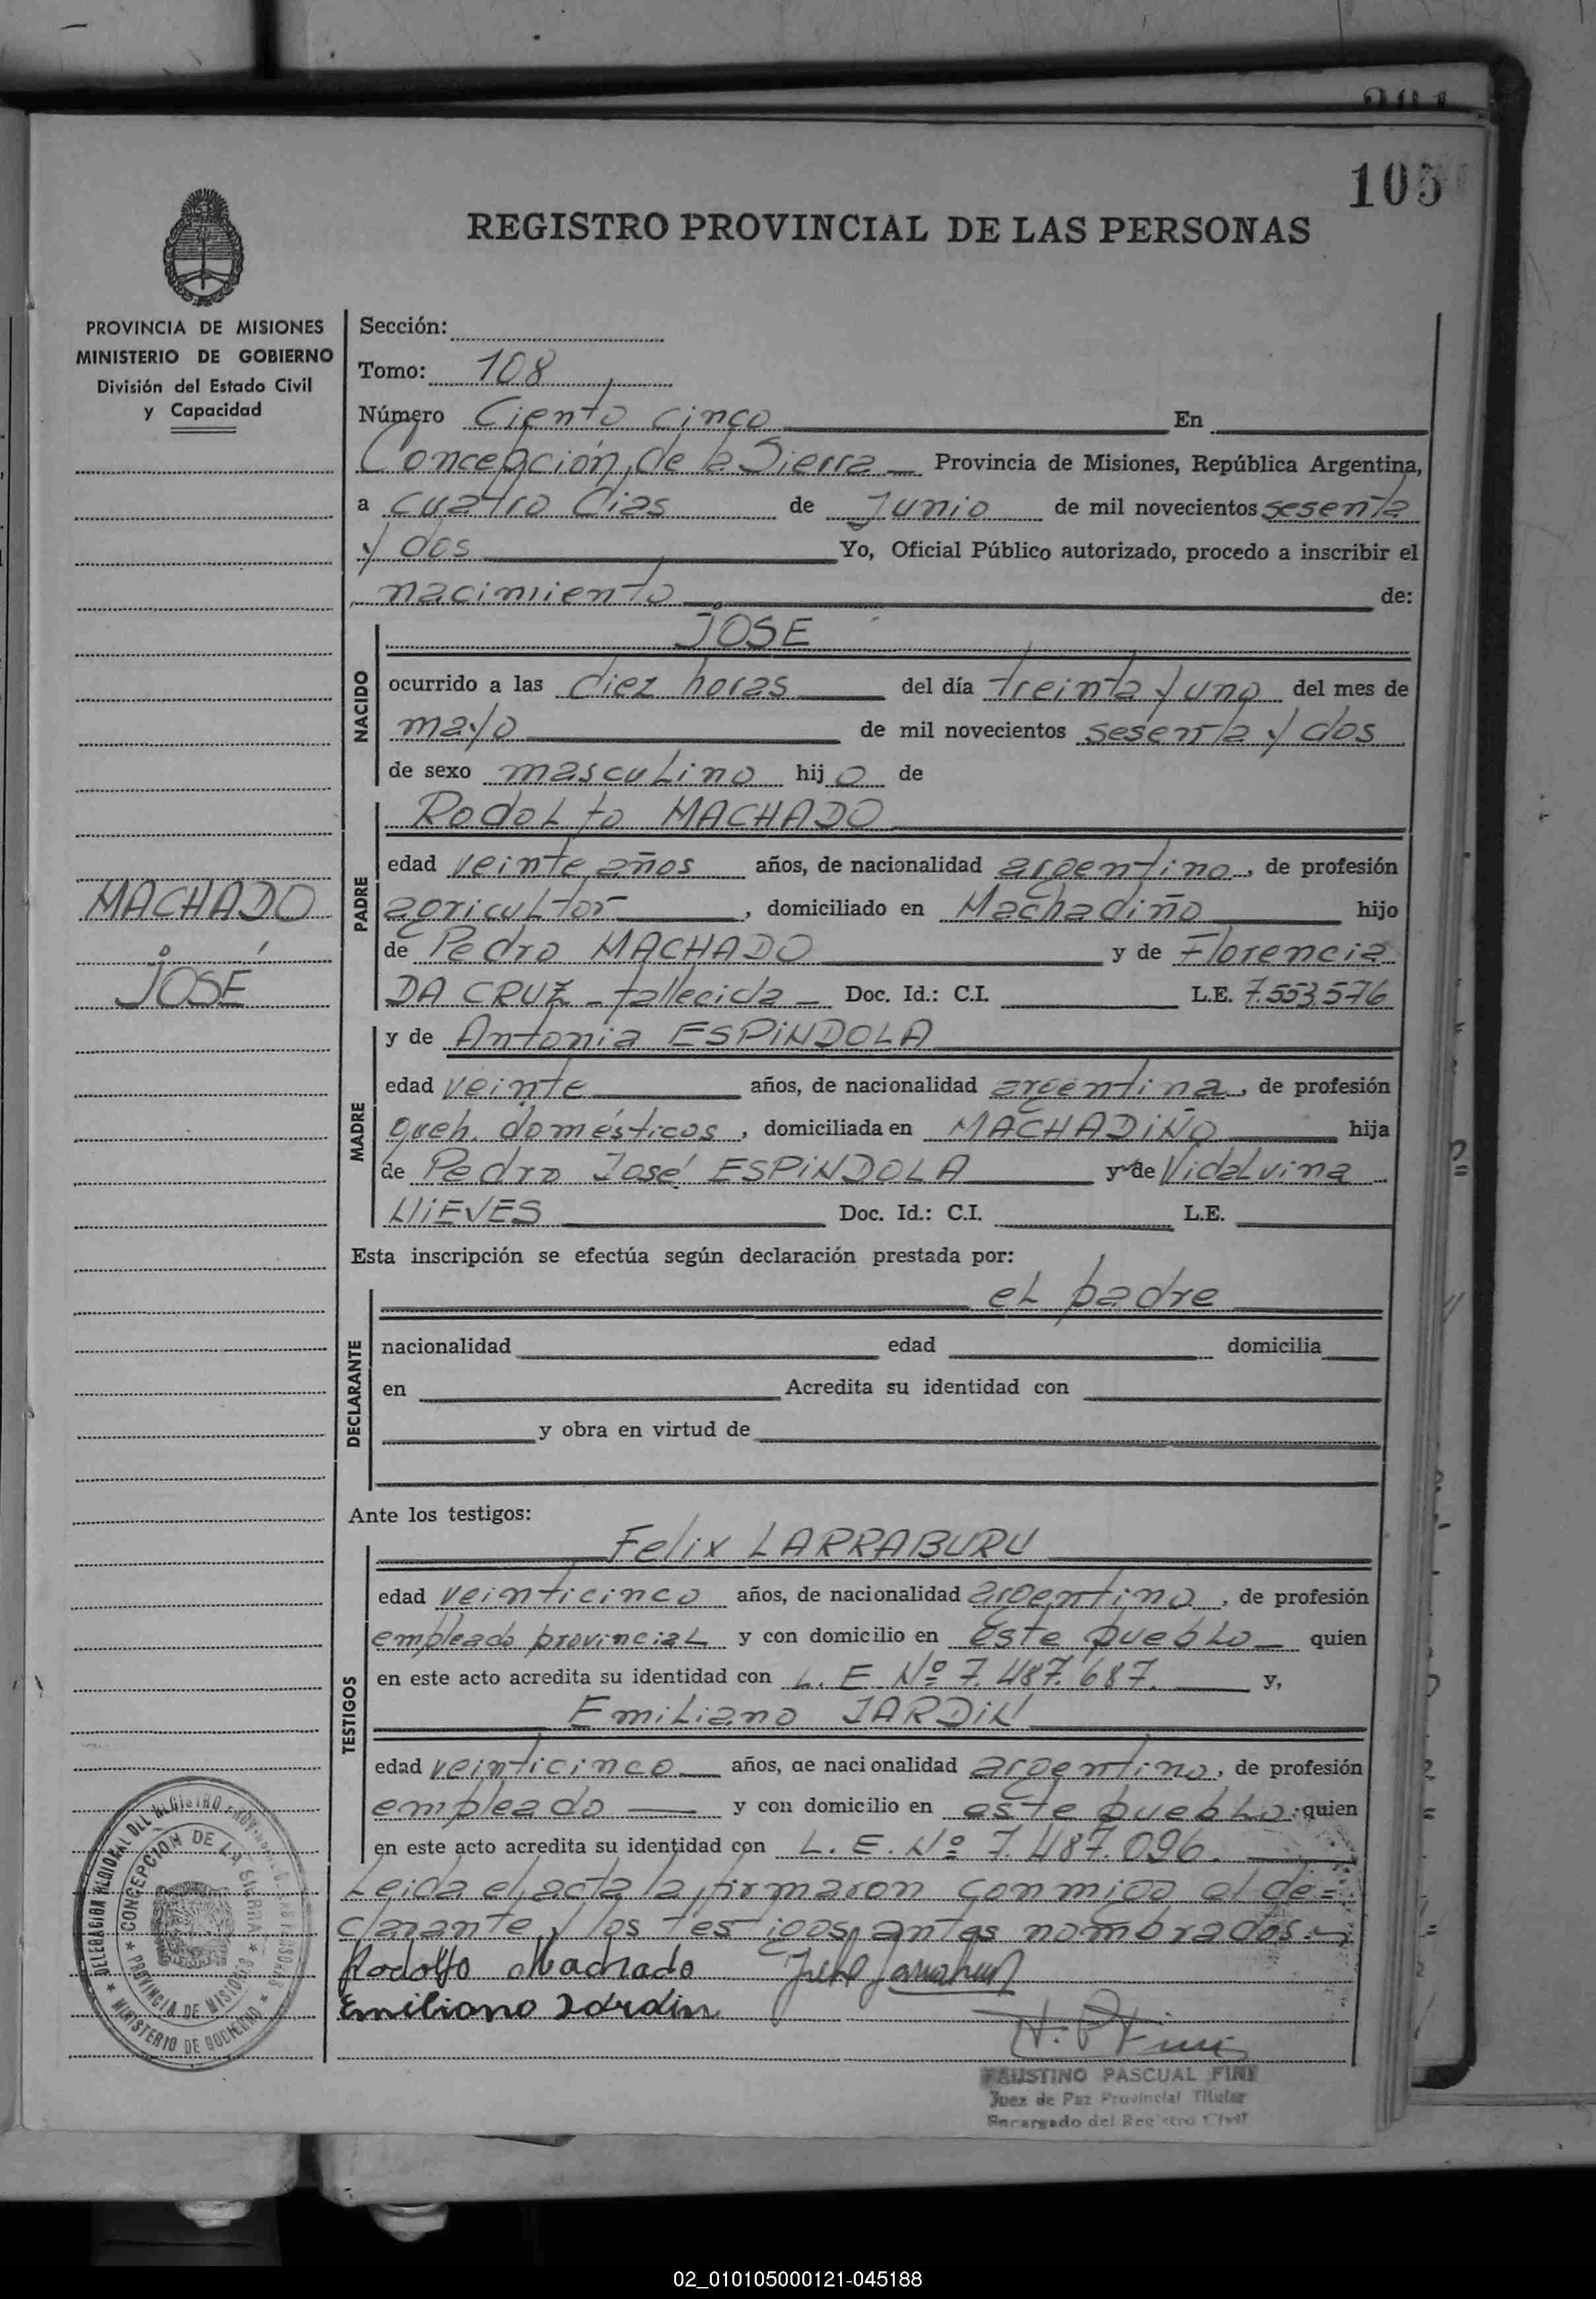 105
REGISTRO PROVINCIAL DE LAS PERSONAS
PROVINCIA DE MISIONES
MINISTERIO DE GOBIERNO
División del Estado Civil
y Capacidad
MACHADO
JOSÉ
Sección:
Tomo: 108
Número Ciento cinco En
Concepción de la Sierra Provincia de Misiones, República Argentina,
a cuatro días de Junio de mil novecientos sesenta
y dos Yo, Oficial Público autorizado, procedo a inscribir el
nacimiento de:
NACIDO
JOSE
ocurrido a las diez horas del día treinta y uno del mes de
mayo de mil novecientos sesenta y dos
de sexo masculino hijo de
PADRE
Rodolfo MACHADO
edad veinte años años, de nacionalidad argentino, de profesión
agricultor, domiciliado en Machadiño hijo
de Pedro MACHADO y de Florencia
DA CRUZ - fallecida - Doc. Id.: C.I. L.E. 7.553.576
MADRE
y de Antonia ESPINDOLA
edad veinte años, de nacionalidad argentina, de profesión
queh. domésticos, domiciliada en MACHADIÑO hija
de Pedro José ESPINDOLA y de Vidalvina
NIEVES Doc. Id.: C.I. L.E.
Esta inscripción se efectúa según declaración prestada por:
DECLARANTE
el padre
nacionalidad edad domicilia
en Acredita su identidad con
y obra en virtud de
Ante los testigos:
TESTIGOS
Felix LARRABURU
edad veinticinco años, de nacionalidad argentino, de profesión
empleado provincial y con domicilio en este pueblo quien
en este acto acredita su identidad con L. E. Nº 7.487.687. y,
Emiliano JARDIN
edad veinticinco años, de nacionalidad argentino, de profesión
empleado y con domicilio en este pueblo; quien
en este acto acredita su identidad con L. E. Nº 7.487.096.
Leida el acta la firmaron conmigo el de=
clarante y los testigos antes nombrados.-
Rodolfo Machado
Emiliano Jardin
FAUSTINO PASCUAL FINI
Juez de Paz Provincial Titular
Encargado del Registro Civil
DELEGACION REGIONAL DEL REGISTRO PROVINCIAL DE LAS PERSONAS
CONCEPCION DE LA SIERRA
PROVINCIA DE MISIONES
MINISTERIO DE GOBIERNO
02_010105000121-045188